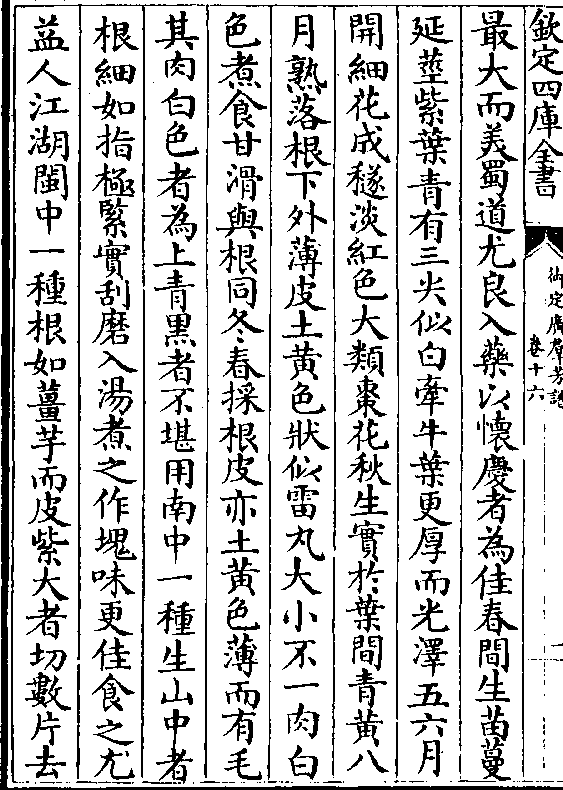 欽定四庫全書
御定廣羣芳譜
卷十六
最大而美蜀道尤良入藥以懷慶者為佳春間生苗蔓
延莖紫葉青有三尖似白牽牛葉更厚而光澤五六月
開細花成穟淡紅色大類棗花秋生實於葉間青黃八
月熟落根下外薄皮土黃色狀似雷丸大小不一肉白
色煮食甘滑與根同冬春採根皮亦土黃色薄而有毛
其肉白色者為上青黑者不堪用南中一種生山中者
根細如指極緊實刮磨入湯煮之作塊味更佳食之尤
益人江湖閩中一種根如薑芋而皮紫大者切數片去